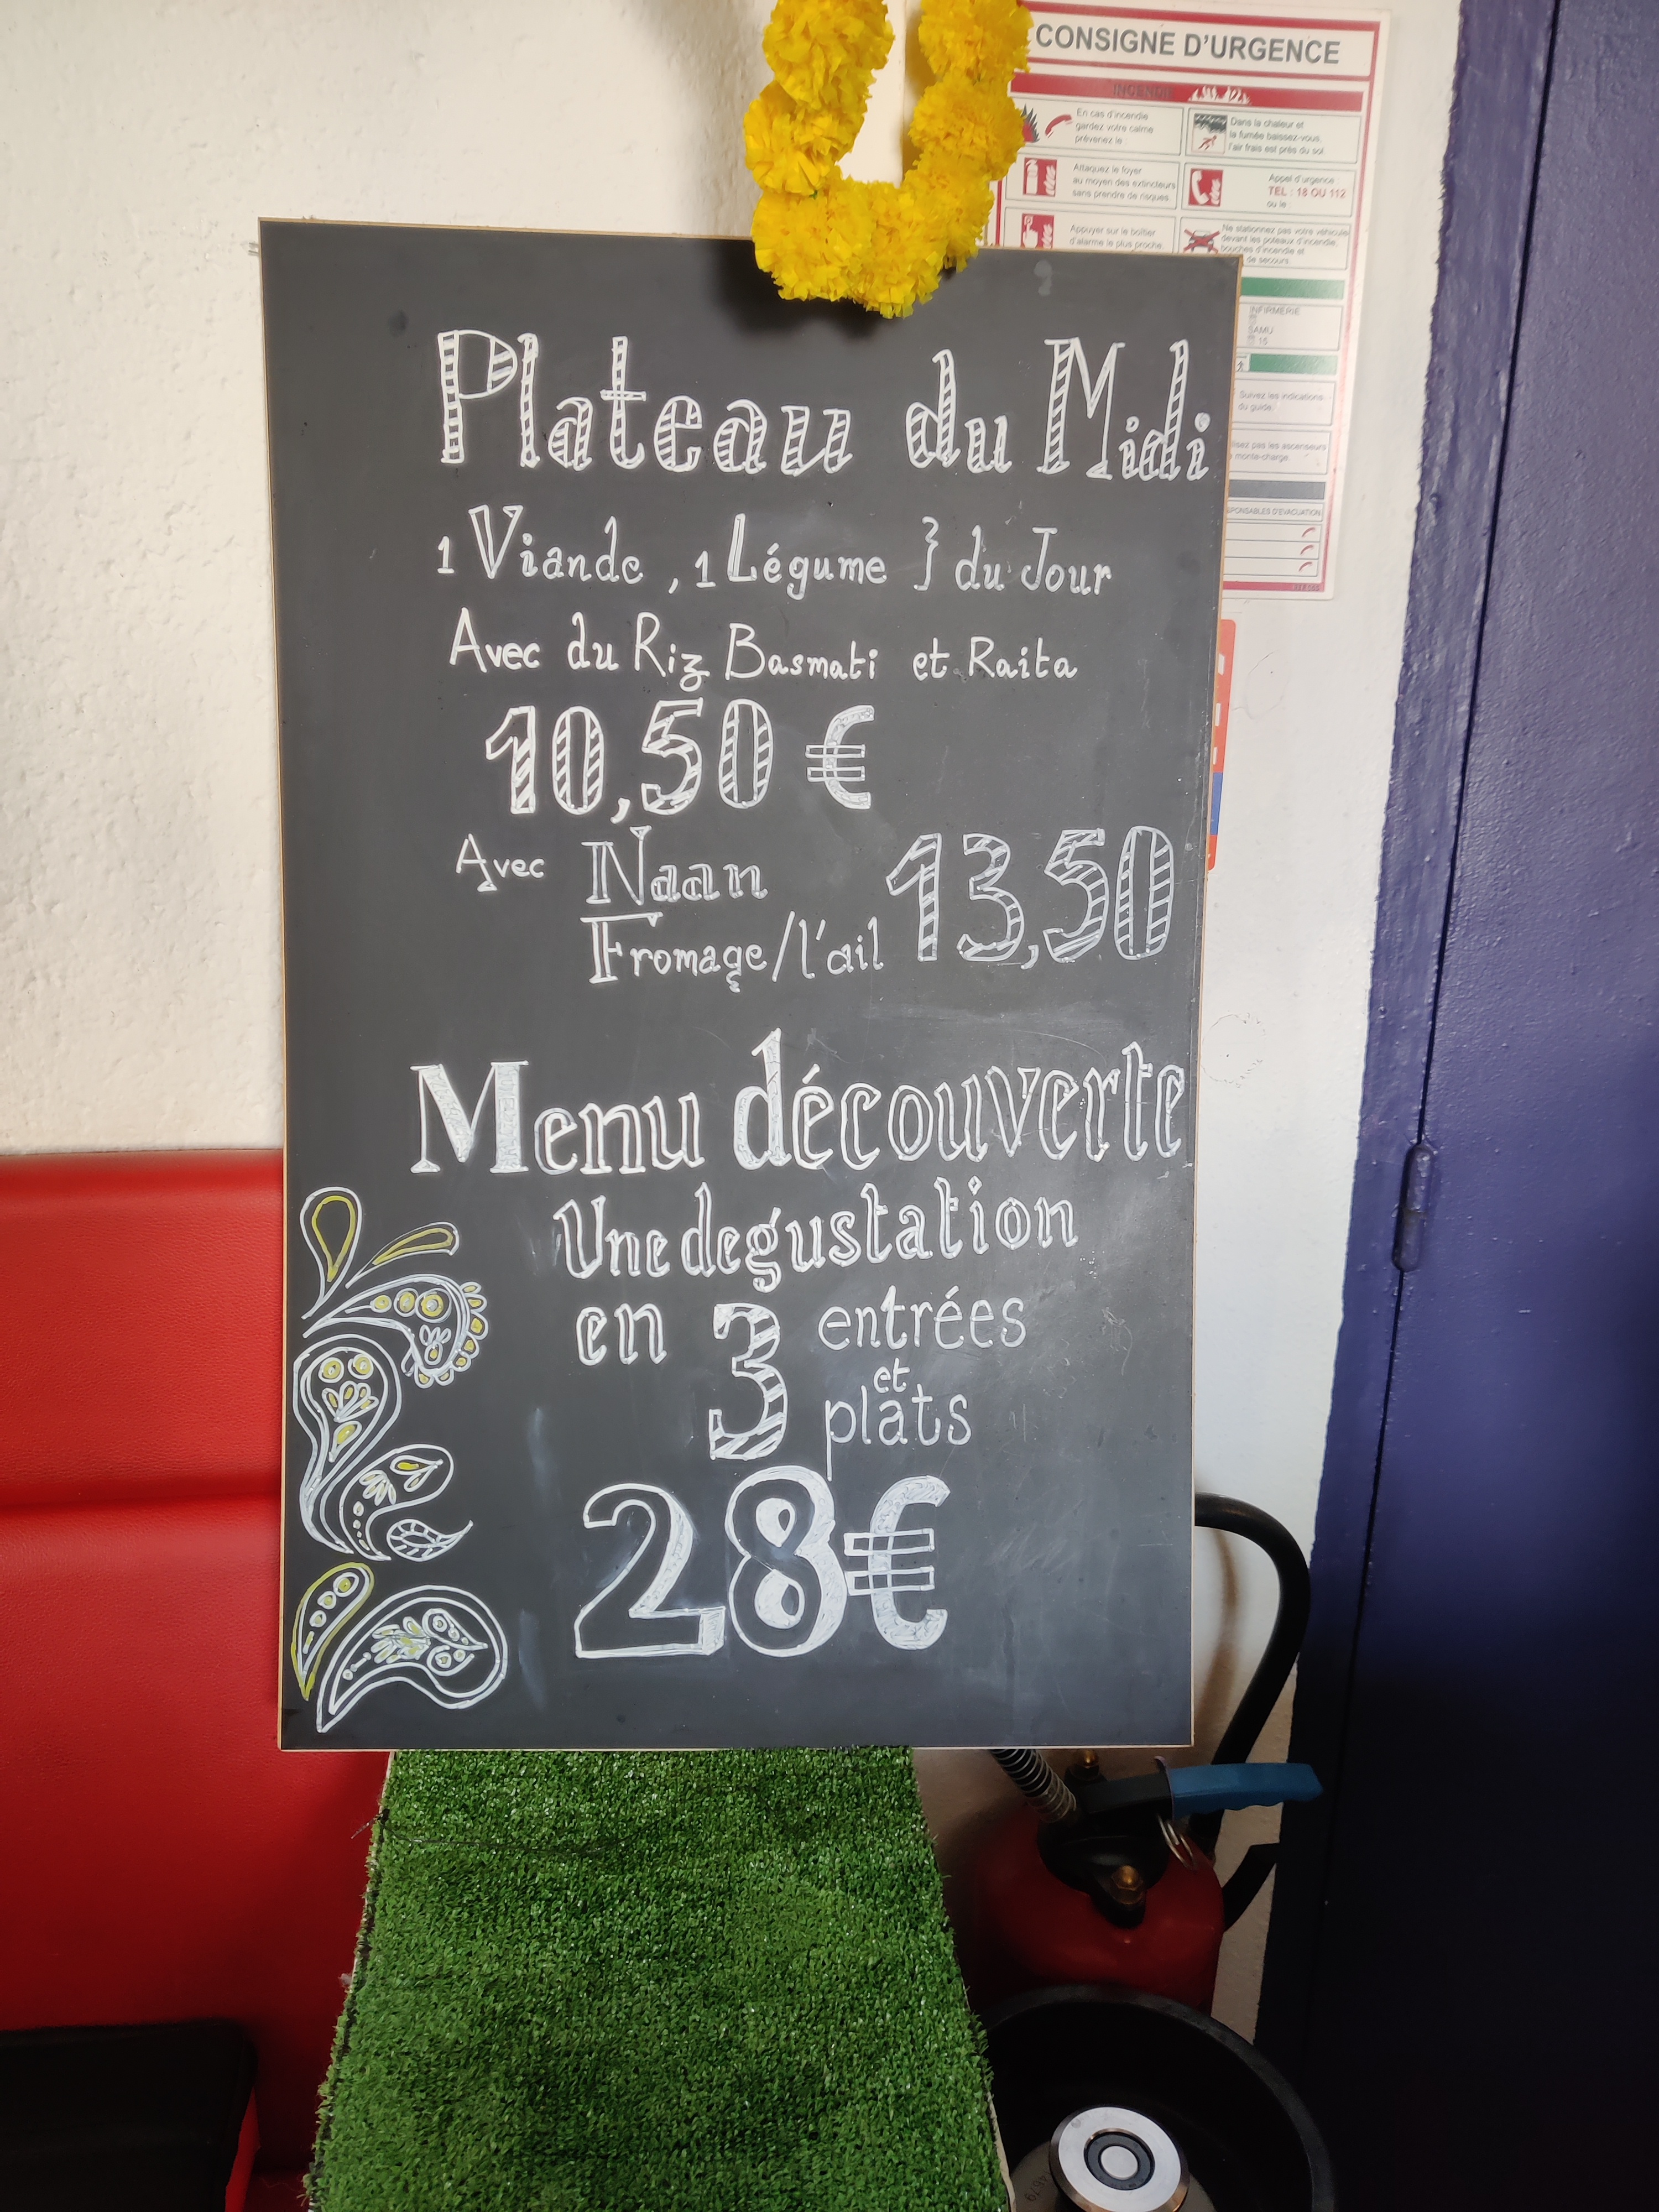 CONSIGNE D'URGENCE
INCENDIE
En cas d'incendie
gardez votre calme
prévenez le
Dans la chaleur et
la fumée baissez-vous,
l'air frais est près du sol.
Attaquez le foyer
au moyen des extincteurs
sans prendre de risques.
Appel d'urgence
TEL : 18 OU 112
ou le :
Appuyer sur le boîtier
d'alarme le plus proche.
Ne stationnez pas votre véhicule
devant les poteaux d'incendie,
bouches d'incendie et
de secours.
INFIRMERIE
SAMU
15
Suivez les indications
du guide.
pas les ascenseurs
monte-charge.
D'ÉVACUATION
Plateau du Midi
1 Viande , 1 Légume } du Jour
Avec du Riz Basmati et Raita
10,50 €
Avec Naan 13,50
Fromage/l'ail
Menu découverte
Une degustation
en 3 entrées
et
plats
28€